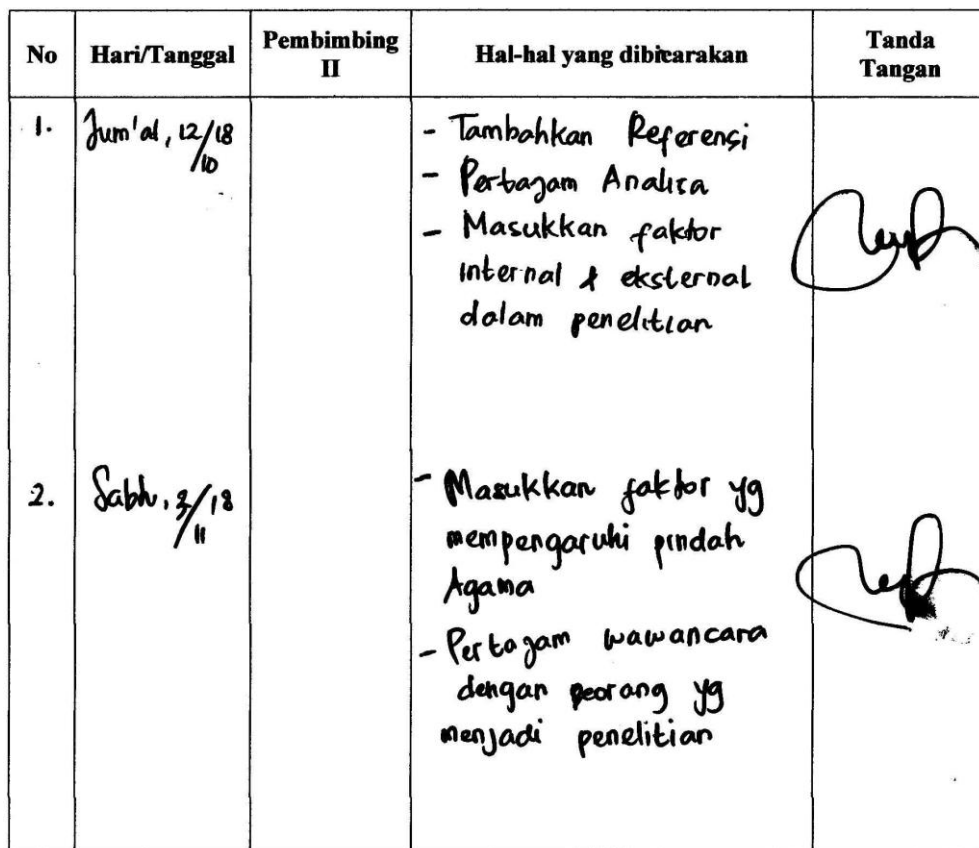 No Hari/Tanggal Pembimbing II Hal-hal yang dibicarakan Tanda Tangan
1. Jum'at, 12/10/18
- Tambahkan Referensi
- Pertajam Analisa
- Masukkan faktor
internal & eksternal
dalam penelitian
2. Sabtu, 3/11/18
- Masukkan faktor yg
mempengaruhi pindah
Agama
- Pertajam wawancara
dengan seorang yg
menjadi penelitian